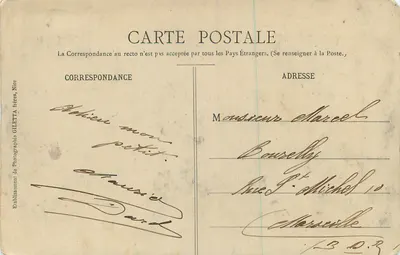 CARTE POSTALE
La Correspondance au recto n'est pas acceptée par tous les Pays Étrangers. (Se renseigner à la Poste.)
CORRESPONDANCE
ADRESSE
Etablissement de Photographie GILETTA frères, Nice
Adieu mon
petit.
Maurice
Monsieur Marcel
Bourelly
Rue St Michel 10
Marseille
B. D. R